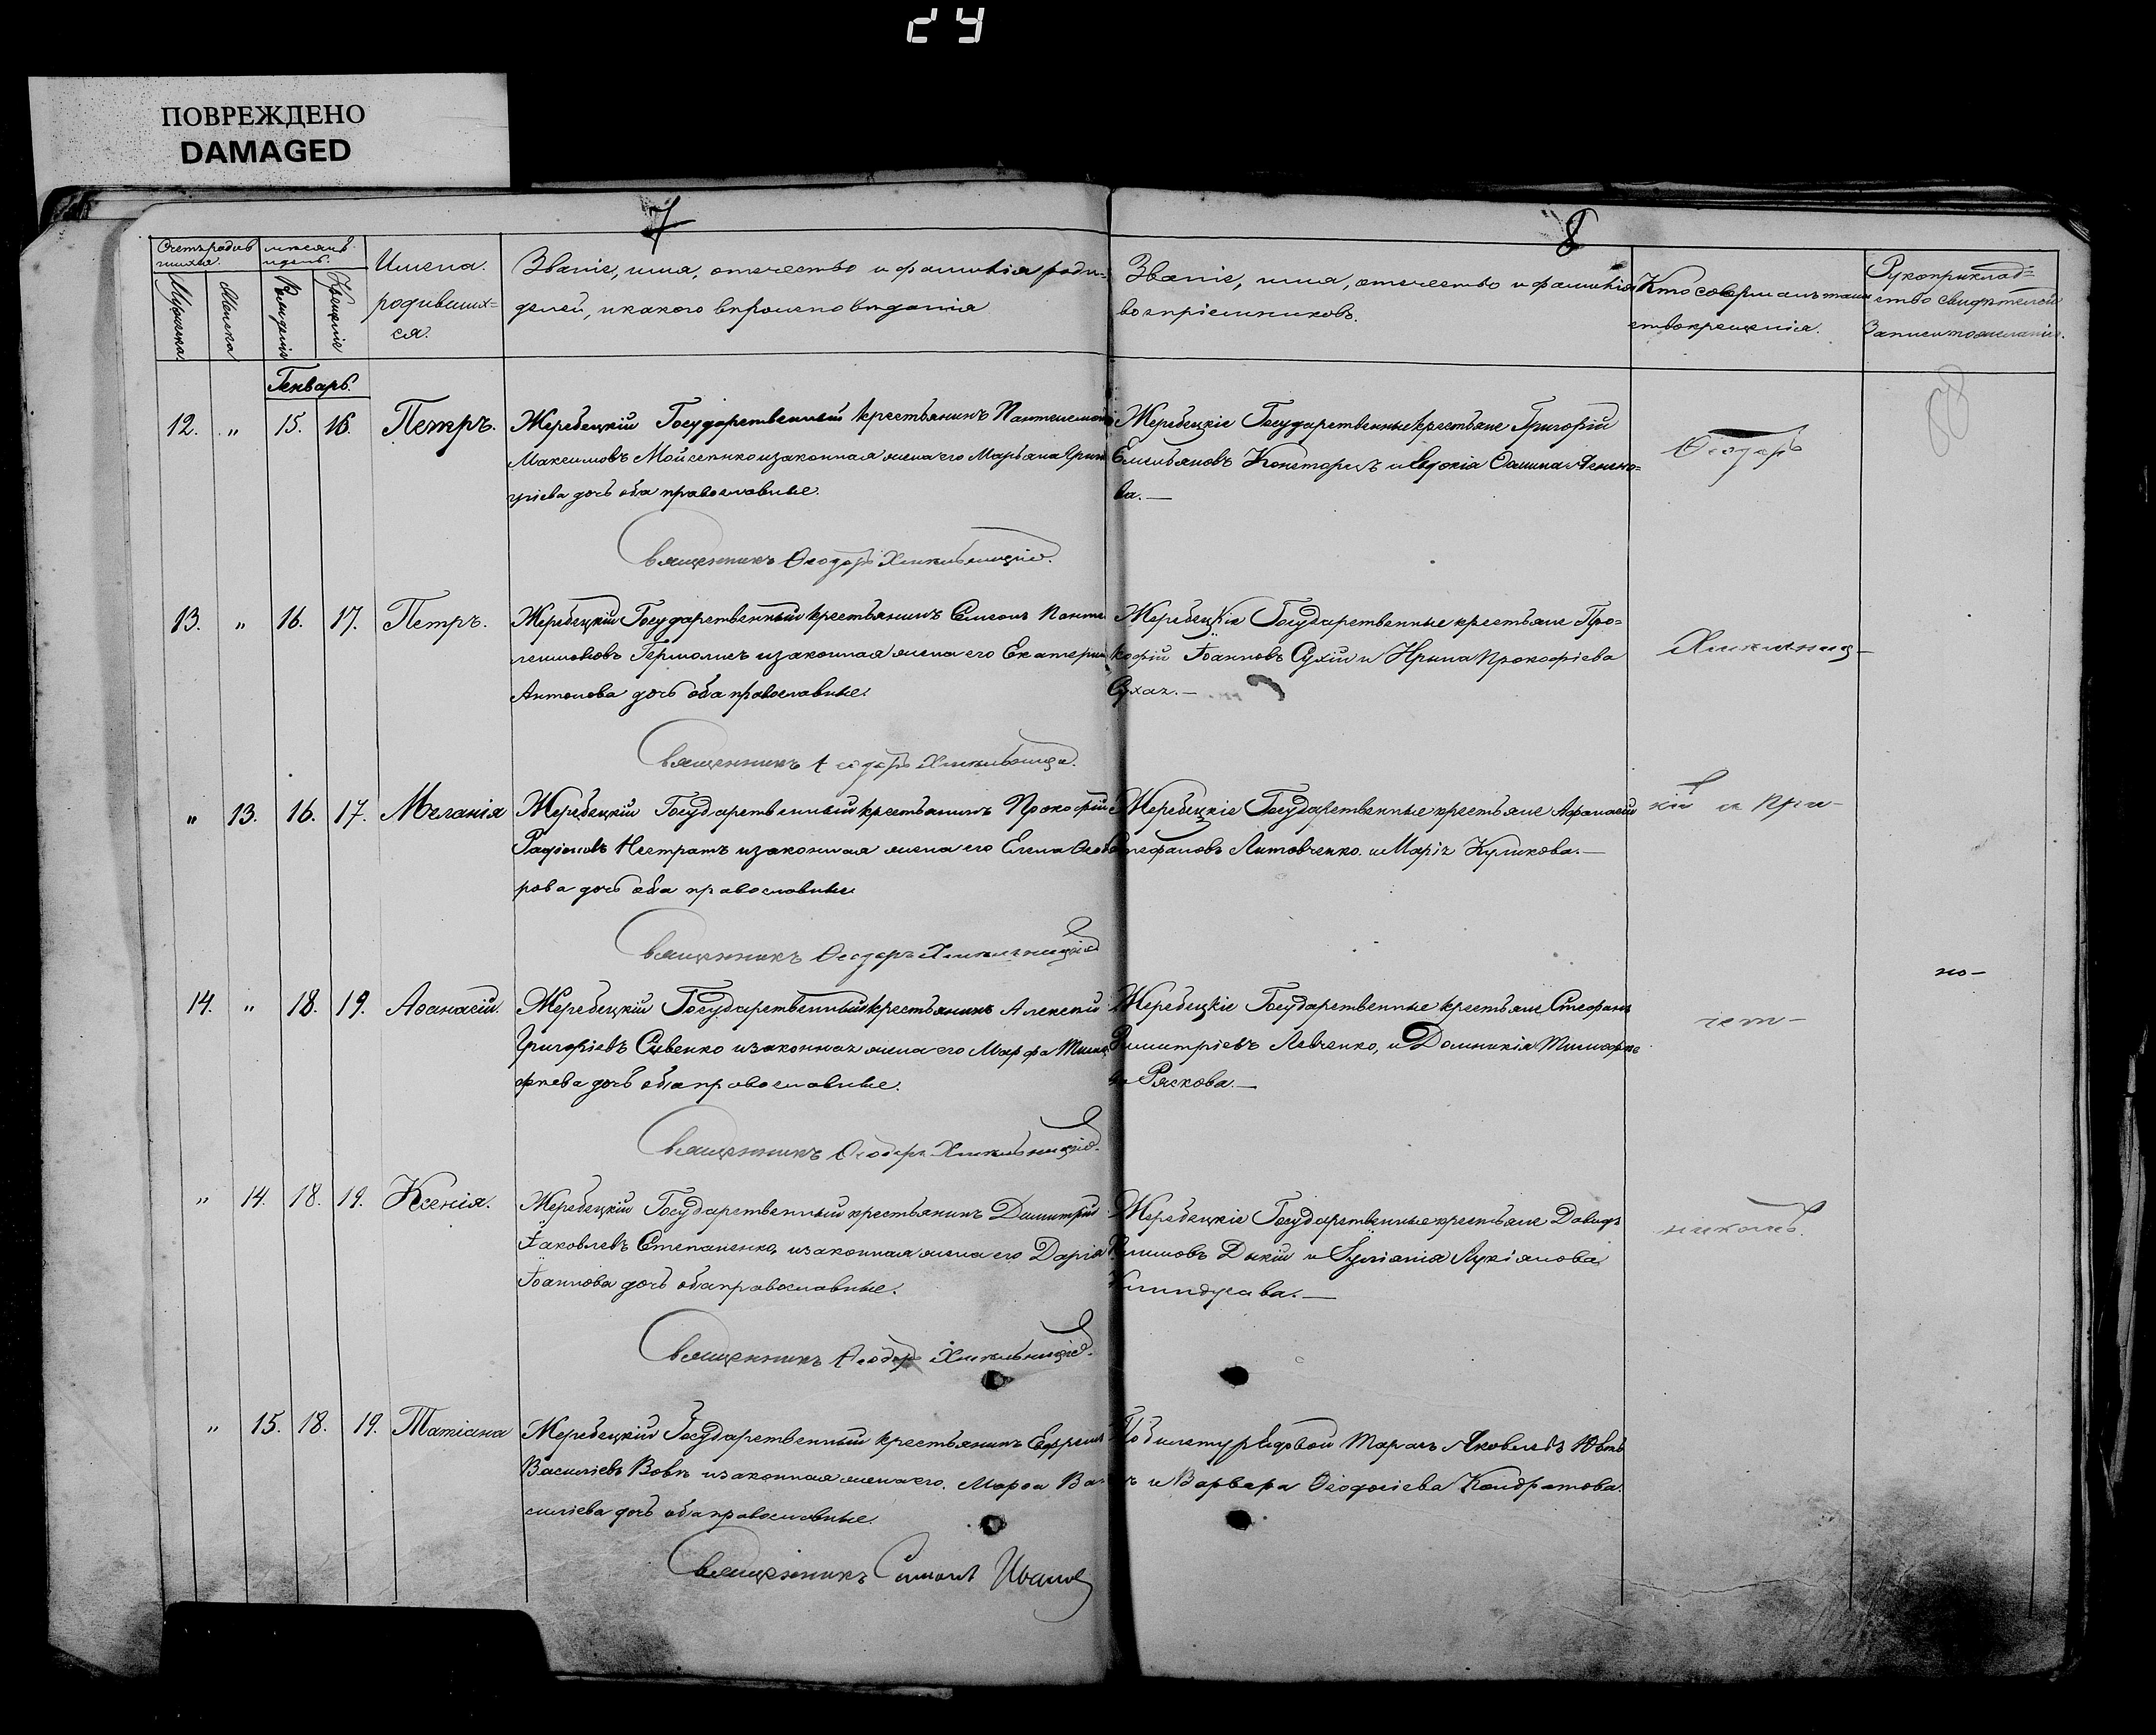 24
ПОВРЕЖДЕНО
DAMAGED
7
8
Счетъ родив
шихся.
мѣсяцъ
и день.
Мужеска
Женска
Рожденія
Крещеніе
Имена.
родивших=
ся.
Званіе, имя, отечество и фамилія роди=
телей, и какого вѣроисповѣданія
Званіе, имя, отечество и фамилія
воспріемниковъ.
Кто совершалъ таин
ство крещенія.
Рукоприклад=
ство свидѣтелей
записи по желанію.
Генварь.
12. „ 15. 16. Петръ.
Жеребецкій Государственный крестьянинъ Пантелемонъ
Максимовъ Мойсеенко и законная жена его Марьяна Григо
ріева дочь оба православные.
Священникъ Ѳеодоръ Хмельницкій.
Жеребецкіе Государственные крестьяне Григорій
Емельяновъ и Евдокія
ва.—
Ѳеодоръ
13. „ 16. 17. Петръ.
Жеребецкій Государственный крестьянинъ Симеонъ Панте
леимоновъ и законная жена его Екатерин
Антонова дочь оба православные.
Священникъ Ѳеодоръ Хмельницкій.
Жеребецкіе Государственные крестьяне Про=
кофій Іоанновъ Сухій и Ирина Прокофіева
Сухая.—
Хмельниц-
„ 13. 16. 17. Меланія
Жеребецкій Государственный крестьянинъ Прокофій
Радіоновъ и законная жена его Елена Ѳеодо
рова дочь оба православные.
Священникъ Ѳеодоръ Хмельницкій
Жеребецкіе Государственные крестьяне Афанасій
Стефановъ Литовченко и Марія Куликова.—
кій и при-
14. „ 18. 19. Аѳанасій.
Жеребецкій Государственный крестьянинъ Алексей
Григорьевъ Сивенко и законная жена его Марфа Тимо
феева дочь оба православные.
Священникъ Ѳеодоръ Хмельницкій.
Жеребецкіе Государственные крестьяне Стефанъ
Димитріевъ Левченко, и Домникія Тимофее
ва Ряскова.—
чет-
но-
„ 14. 18. 19. Ксенія.
Жеребецкій Государственный крестьянинъ Димитрій
Іаковлевъ Степаненко, и законная жена его Дарія
Іоаннова дочь оба православные.
Священникъ Ѳеодоръ Хмельницкій.
Жеребецкіе Государственные крестьяне Давидъ
Дикій и Лукіанова
никомъ.
„ 15. 18. 19. Татіана
Жеребецкій Государственный крестьянинъ Ефремъ
Василіевъ Вовкъ и законная жена его Марфа Ва=
силіева дочь оба православные.
Священникъ Симонъ Ивановъ
Тарасъ Яковлевъ
и Варвара Ѳеодосіева Кондратова.